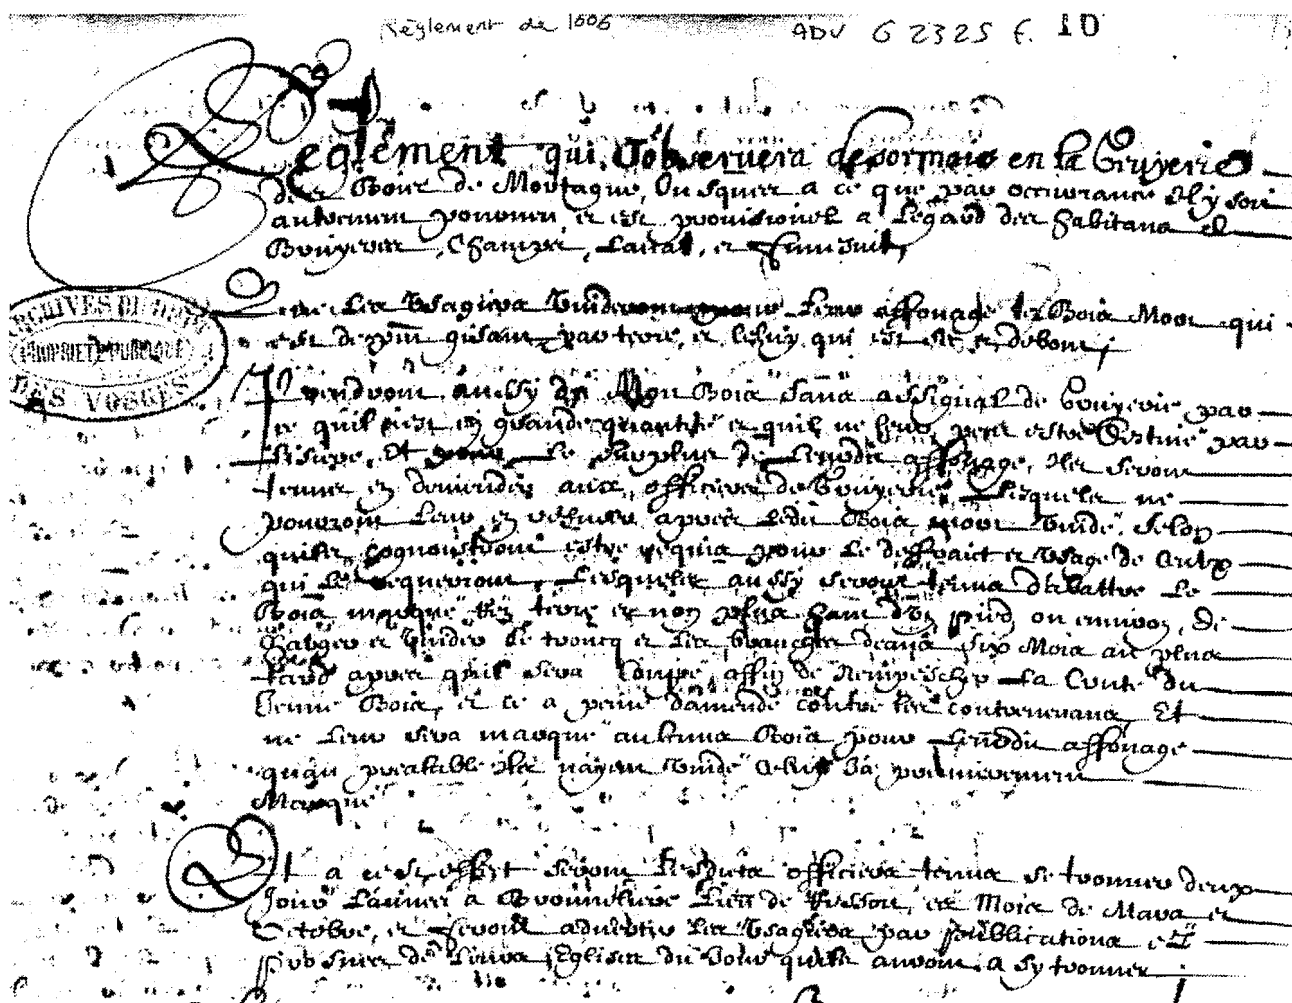 Reglement de 1606
ADV G 2325 f. 10
Reglement qui s'observera desormais en la Gruyerie
des Bois de Montagne, Jusques a ce que par occurrance il y soit
autrement pourveu et est provisionel a l'egard des habitans de
Bruyeres, Champs, Laval, et
Que les Usagers Vuideront pour leur affouage les Bois Mort qui
est gisant par terre, et celuy qui est sec et debout
Ilz prendront aussy du Mort Bois sans assignal de Gruyerie, par
ce qu'il est en grande quantité et qu'il ne leur peut estre destiné par
Et pour le surplus de leurdit affouage, Ilz seront
tenus en demander aux officiers de Gruyerie, Lesquels ne
pouront leur en refuser apres ledit Bois mort Vuidé, selon
quilz cognoistront estre requis pour le deffruict et Usage de ceulx
qui le requeriront, Lesquels aussy seront tenus d'abattre le
Bois marqué Rez terre et non plus hault d'un pied ou environ, De
et Vuider le troncq et les branches deans six Mois au plus
tard apres quil sera coupé, affin de n'empescher la du
Jeune Bois, et ce a peine d'amende contre les contrevenans, Et
ne leur sera marqué aulcuns Bois pour leurdit affouage
qu'au prealable Ilz n'ayent Vuidé celuy ja premierement
Marqué
Et a cest effect seront lesdits officiers tenus se trouver deux
Jours l'année a lieu de es Mois de Mars et
Octobre, et seront advertis les Usagers par publications
de leurs Eglises du Jour quilz auront a sy trouver
ARCHIVES DU DEPT
PROPRIETE PUBLIQUE
DES VOSGES